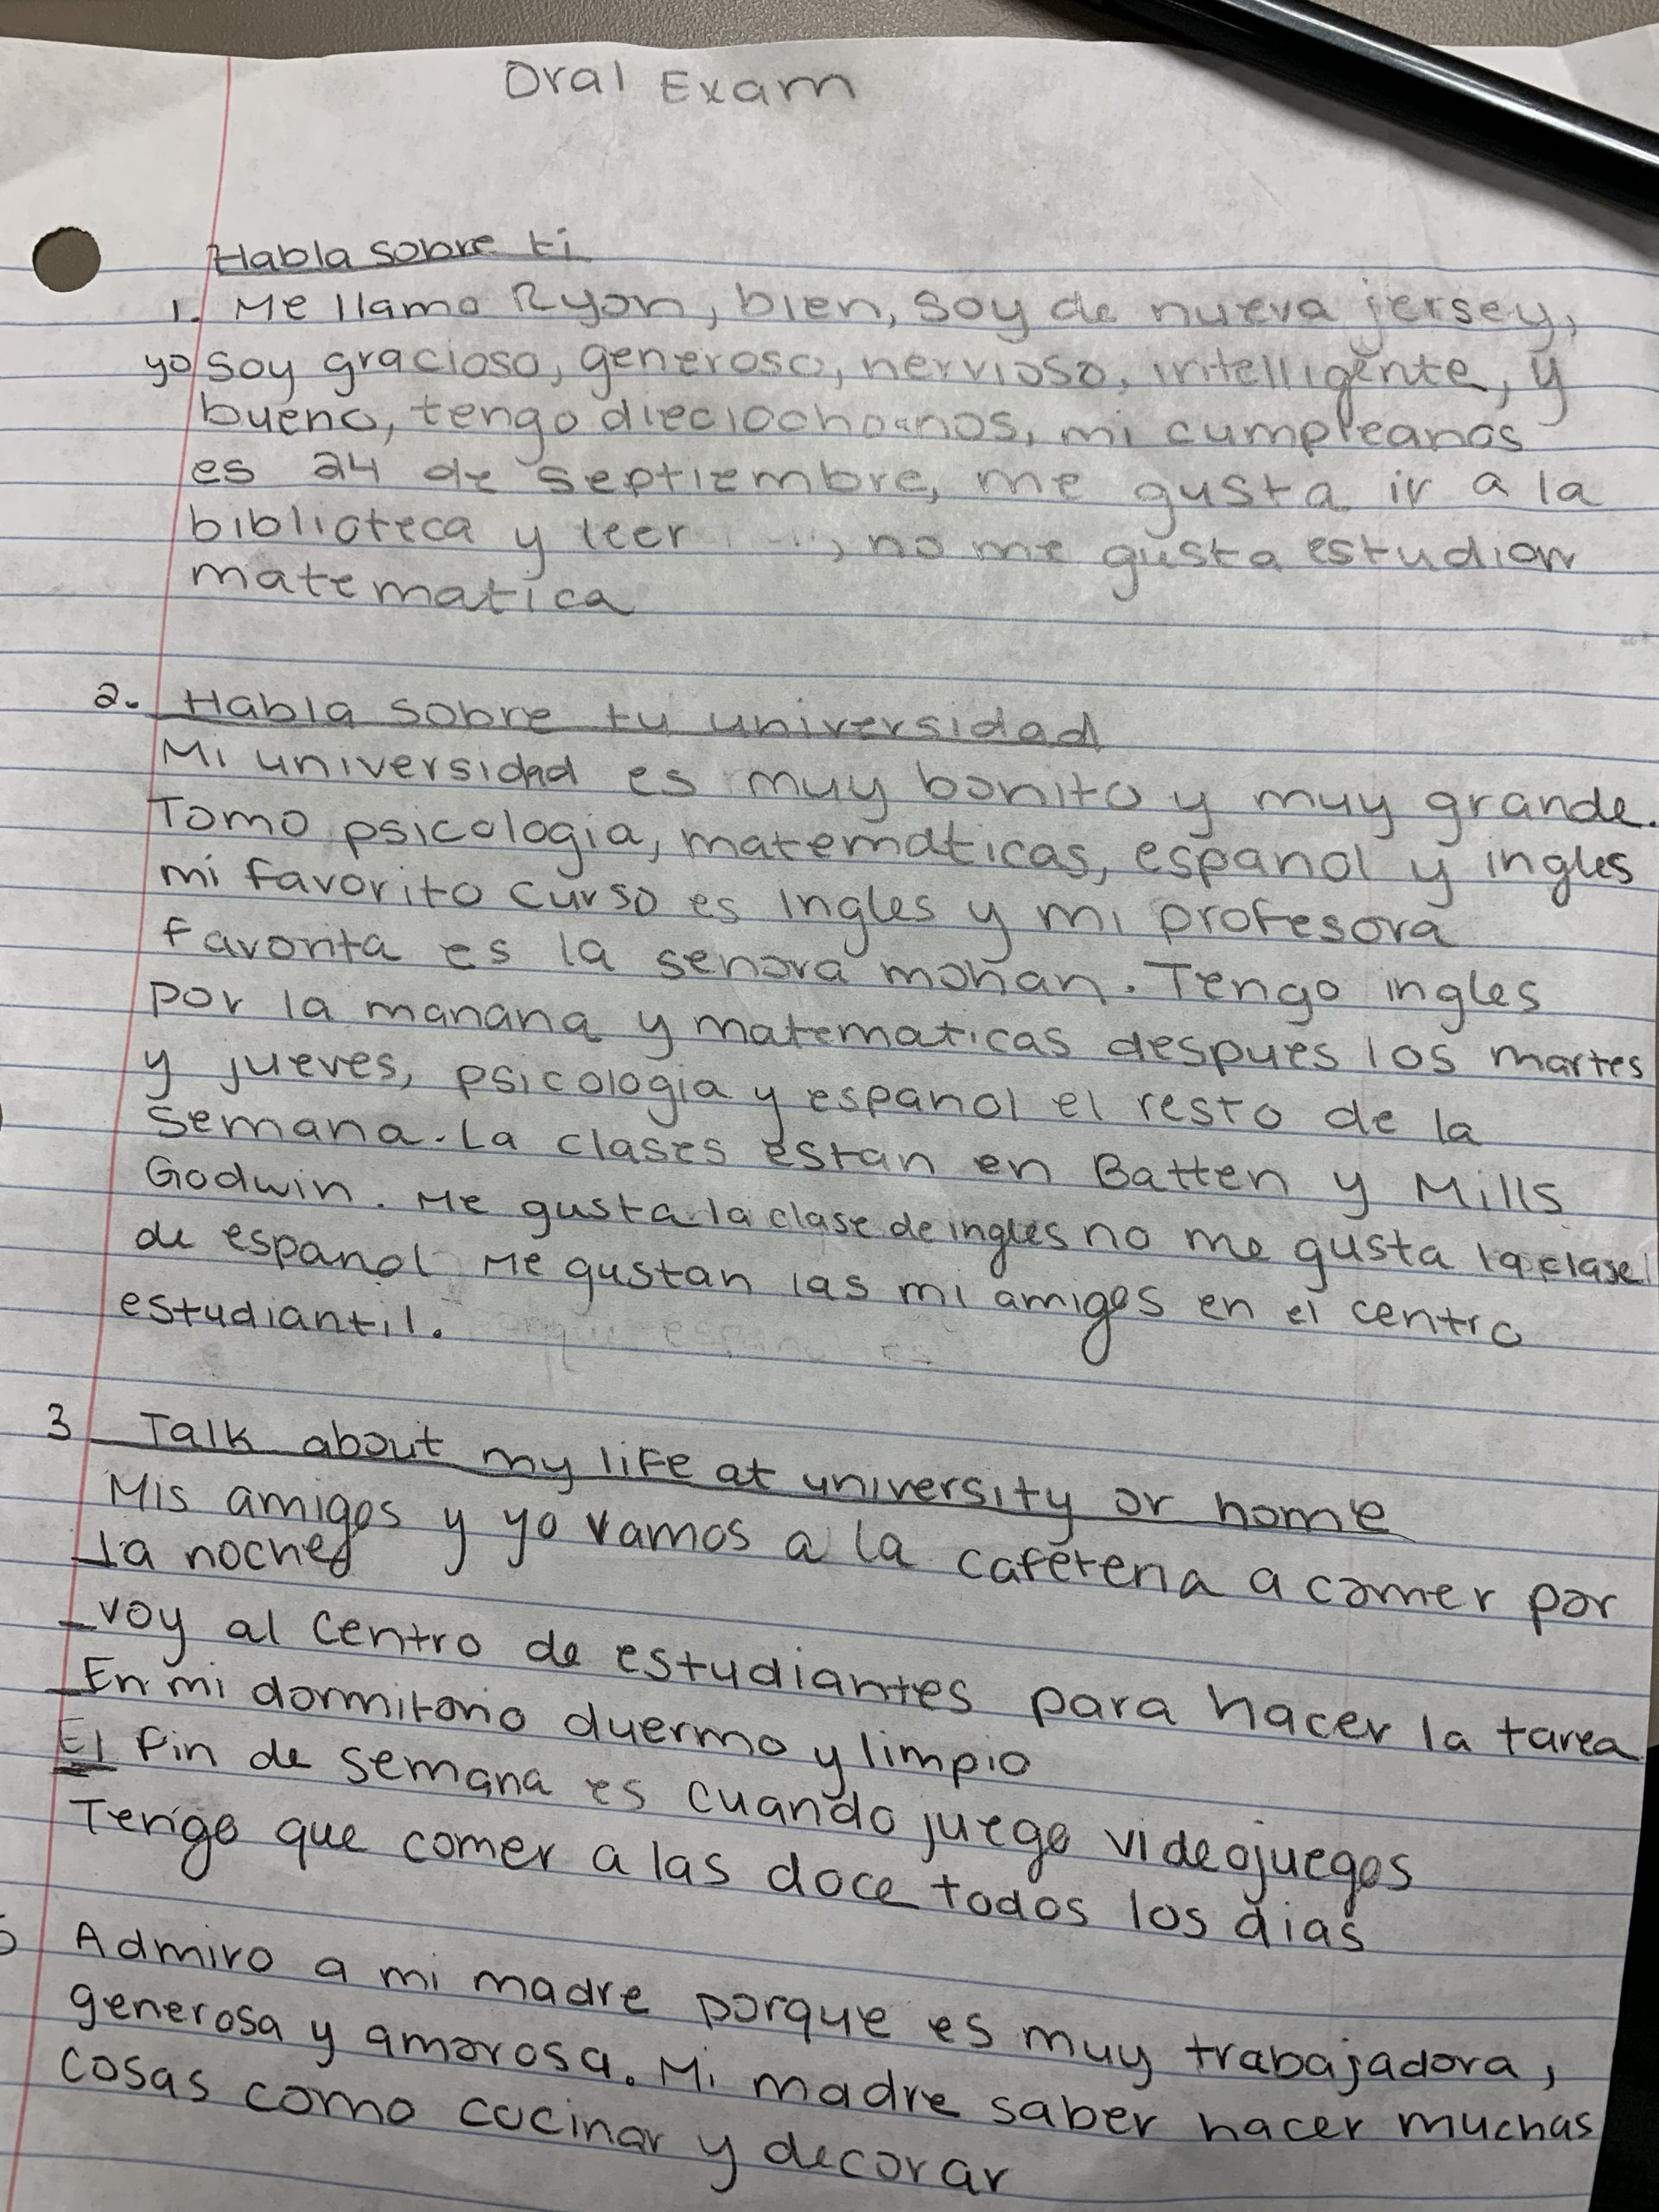 Oral Exam
Habla sobre ti
1. Me llamo Ryan, bien, soy de nueva jersey,
yo soy gracioso, generoso, nervioso, intelligente, y
bueno, tengo dieciocho anos, mi cumpleanos
es 24 de septiembre, me gusta ir a la
biblioteca y leer , no me gusta estudiar
matematica
2. Habla sobre tu universidad
Mi universidad es muy bonito y muy grande.
Tomo psicologia, matemáticas, espanol y ingles
mi favorito curso es ingles y mi profesora
favorita es la senora mohan. Tengo ingles
por la manana y matematicas despues los martes
y jueves, psicologia y espanol el resto de la
semana. La clases estan en Batten y Mills
Godwin. Me gusta la clase de ingles no me gusta la clase
de espanol Me gustan las mi amigos en el centro
estudiantil.
3 Talk about my life at university or home
Mis amigos y yo vamos a la cafeteria a comer por
la noche
voy al centro de estudiantes para hacer la tarea
En mi dormitorio duermo y limpio
El fin de semana es cuando juego videojuegos
Tengo que comer a las doce todos los dias
5 Admiro a mi madre porque es muy trabajadora,
generosa y amorosa. Mi madre saber hacer muchas
cosas como cocinar y decorar